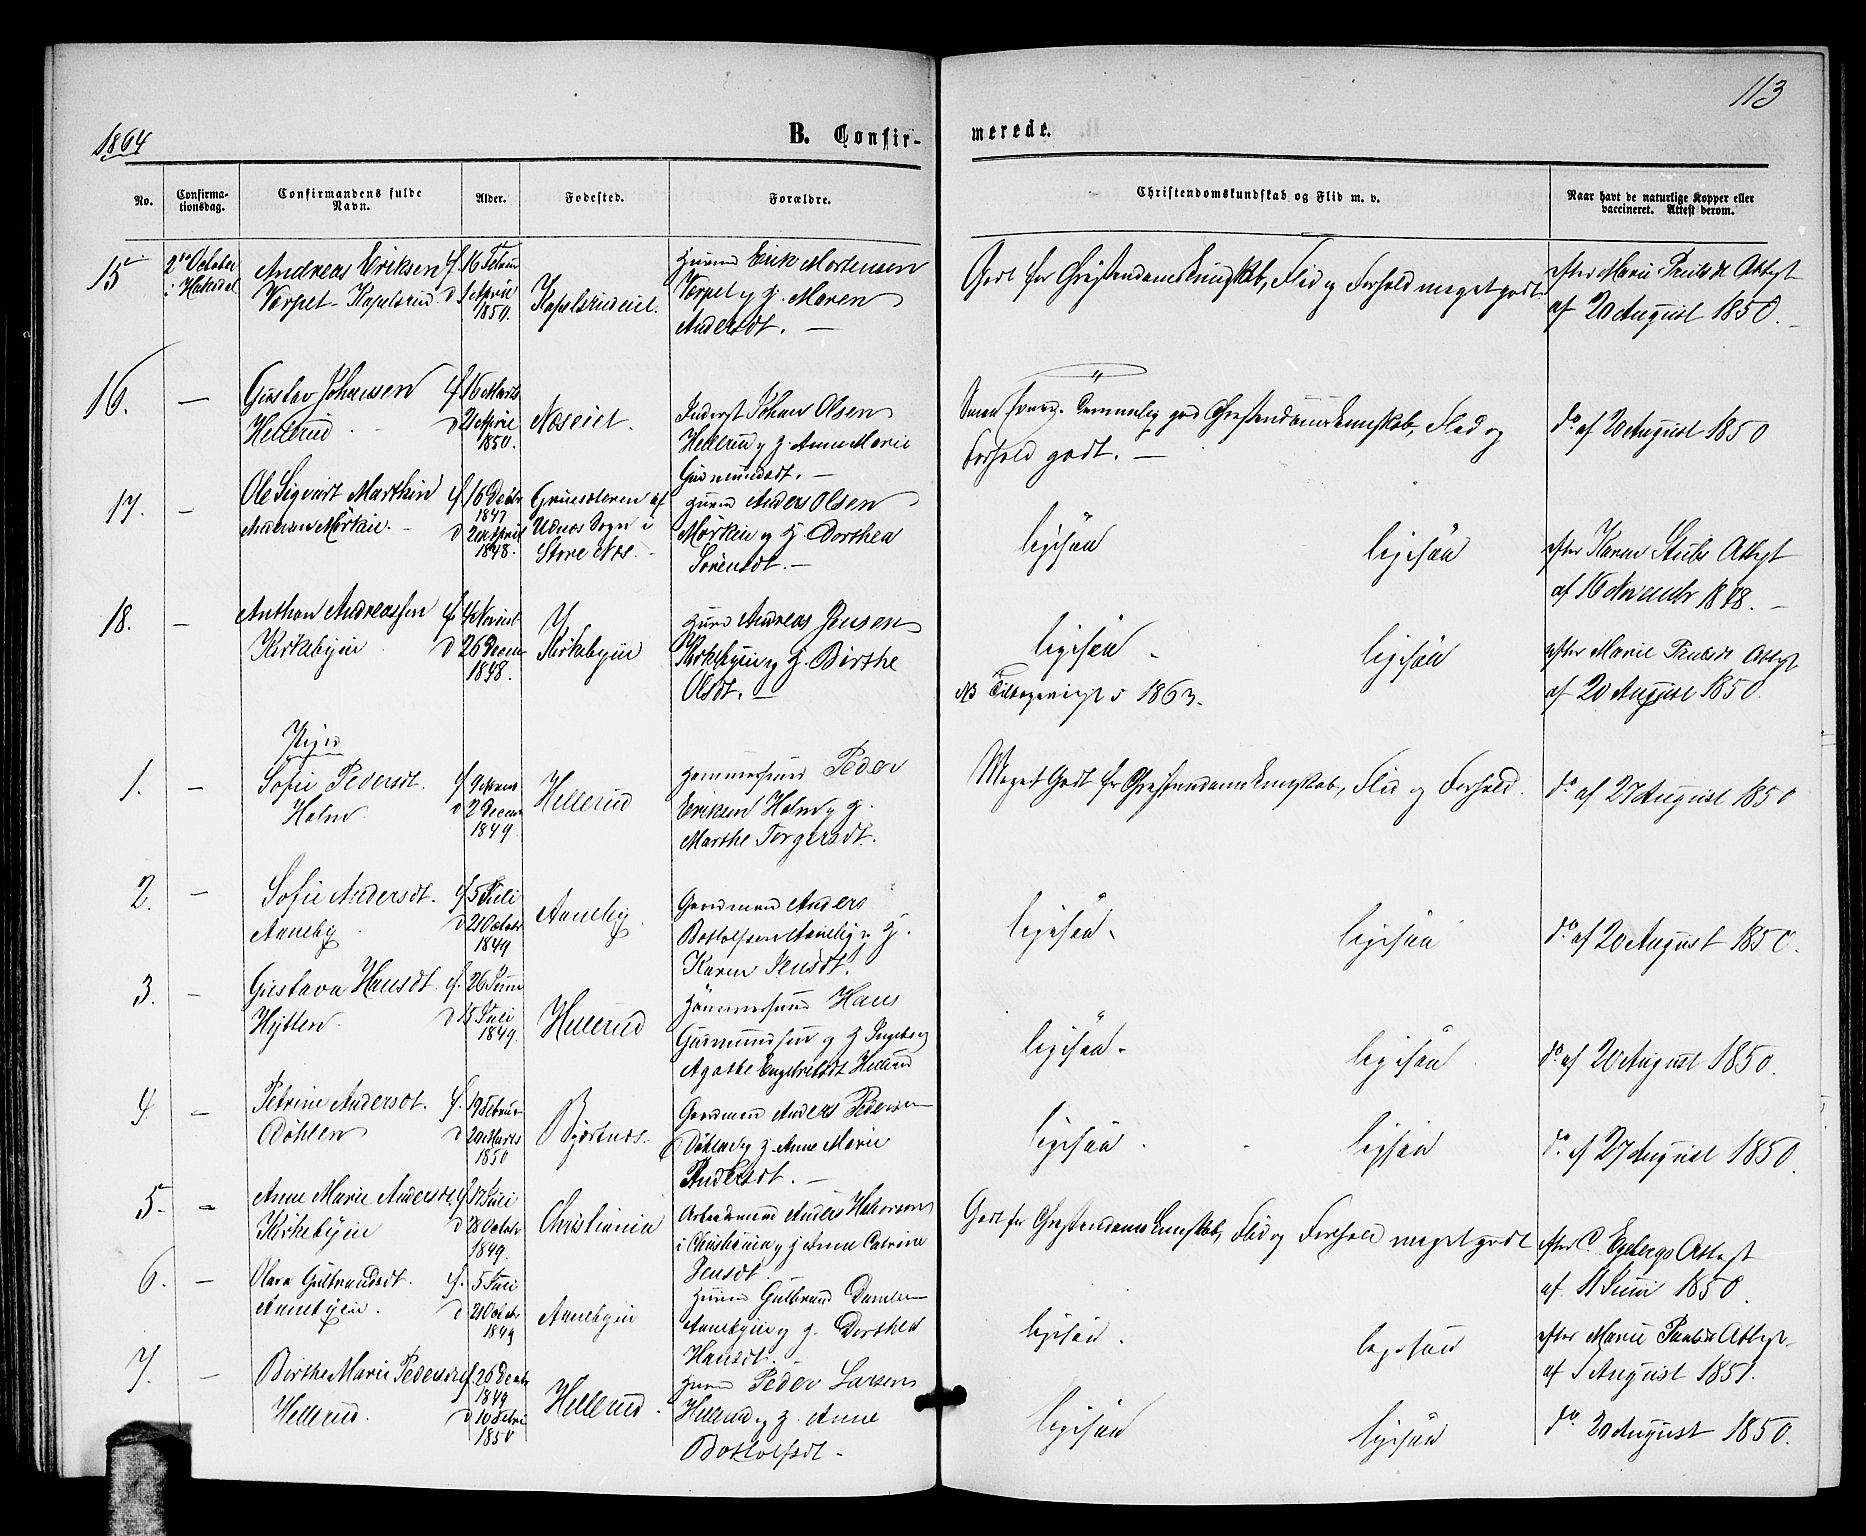 1864
B. Confir-
merede.
113
No.
Confirma-
tionsdag.
Confirmandens fulde
Navn.
Alder.
Fødested.
Forældre.
Christendomskundskab og Flid m. v.
Naar havt de naturlige Kopper eller
vaccineret. Attest derom.
15
2den October
i Hakedal
Andreas Eriksen
Varpet
f. 16
d. 1 April
1850.
Huusmd Erik Mortensen
Varpet og H. Maren
Andersdt. —
Godt for Christendomskundskab, Flid og Forhold meget godt
efter Marie Attest
af 20 August 1850. —
16.
—
Gustav Johansen
Hellerud
f. 16 Marts
d. 21 April
1850.
Næseiet.
Inderst Johan Olsen
Hellerud og H. Anne Marie
Gudmundsdt. —
god Christendomskundskab, Flid og
Forhold godt. —
do af 20 August 1850
17.
—
Ole Sigvart Marthin
f. 16 Decbr
1847
d. April
1848.
af
Udnæs Sogn i
Store Næs. —
Huusmd Anders Olsen
og H. Dorthea
Sørensdt. —
ligesaa
ligesaa
efter Karen Attest
af 16 November 1848. —
18.
—
Anthon Andreassen
Kirkebyeie
f. 4 Novbr
d. 26 Decem
1848.
Kirkebyeie
Huusmd Andreas Jensen
Kirkebyeie og H. Birthe
Olsdt. —
ligesaa
ligesaa
NB 1863.
efter Marie Attest
af 20 August 1850.
Piger
1.
—
Sofie Pedersdt.
Holm
f. 9
d. 2 Decem
1849
Hellerud
Hammersmed Peder
Eriksen Holm og H.
Marthe Torgersdt.
Meget Godt for Christendomskundskab, Flid og Forhold.
do af 27 August 1850
2.
—
Sofie Andersdt.
Aaneby
f. 5 Juli
d. 21 Octobr
1849
Aaneby.
Gaardmand Anders
Botolfsen Aaneby og H.
Karen Jensdt.
ligesaa
ligesaa
do af 20 August 1850.
3.
—
Gustava Hansdt.
Hytten.
f. 26 Juni
d. 15 Juli
1849.
Hellerud
Hammersmed Hans
Gudmundsen og H. Ingeborg
Agathe Engebretsdt Hellerud
ligesaa
ligesaa
do af 20 August 1850.
4
—
Petrine Andersdt.
Døhlen
f. 19 Februar
d. 20 Marts
1850
Bjertnæs.
Gaardmand Anders Pedersen
Døhlen og H. Anne Marie
Andersdt. —
ligesaa
ligesaa
do af 27 August 1850.
5.
—
Anne Marie Andersdt.
Kirkebyeie
f. 17 Juli
d. 28 Octobr
1849.
Christiania
Arbeidsmand Anders Halvorsen
i Christiania og H. Anne Catrine
Jensdt.
Godt for Christendomskundskab, Flid og Forhold meget godt
efter C. Egebergs Attest
af 11 Juni 1850.
6.
—
Olava Gulbrandsdt.
Aanebyeie.
f. 5 Juli
d. 21 Octobr
1849
Aanebyeie
Huusmd Gulbrand Danielsen
Aanebyeie og H. Dorthea
Hansdt. —
ligesaa
ligesaa
efter Marie Attest
af August 1851.
7.
—
Birthe Marie Pedersdt
Hellerud.
f. 26 Decbr
1849
d. 10 Febr
1850
Hellerud.
Huusmd Peder Larsen
Hellerud og H. Anne
Botolfsdt. —
ligesaa
ligesaa
do 20 August 1850.